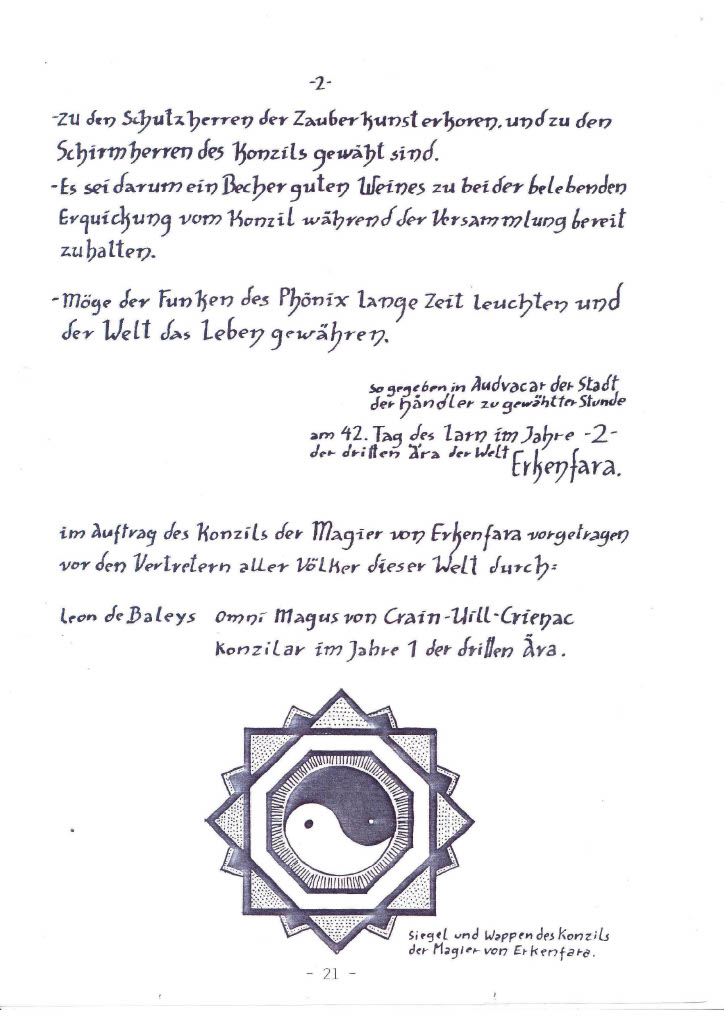 -2-
-zu den Schutzherren der Zauberkunst erkoren, und zu den
Schirmherren des Konzils gewäht sind.
-Es sei darum ein Becher guten Weines zu bei der belebenden
Erquickung vom Konzil während der Versammlung bereit
zuhalten.
-Möge der Funken des Phönix lange Zeit leuchten und
der Welt das Leben gewähren.
so gegeben in Audvacar der Stadt
der händler zu gewählter Stunde
am 42. Tag des larn im Jahre -2-
der dritten Ära der Welt Erkenfara.
im Auftrag des Konzils der Magier von Erkenfara vorgetragen
vor den Vertretern aller Völker dieser Welt durch:
Leon de Baleys Omni Magus von Crain-Uill-Crienac
Konzilar im Jahre 1 der dritten Ära.
Siegel und Wappen des Konzils
der Magier von Erkenfara.
- 21 -